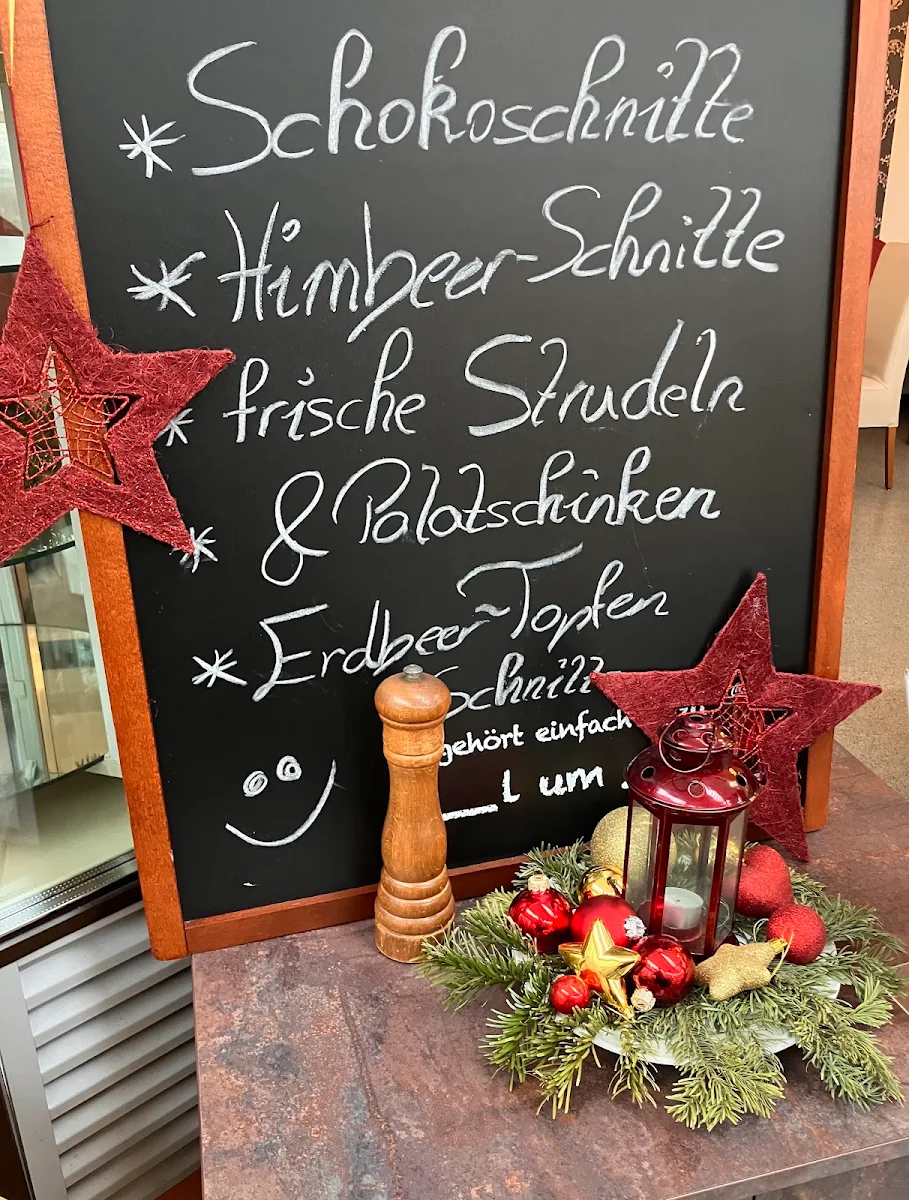 * Schokoschnitte
* Himbeer-Schnitte
* frische Strudeln
* & Palatschinken
* Erdbeer-Topfen
Schnitt
gehört einfach
l um